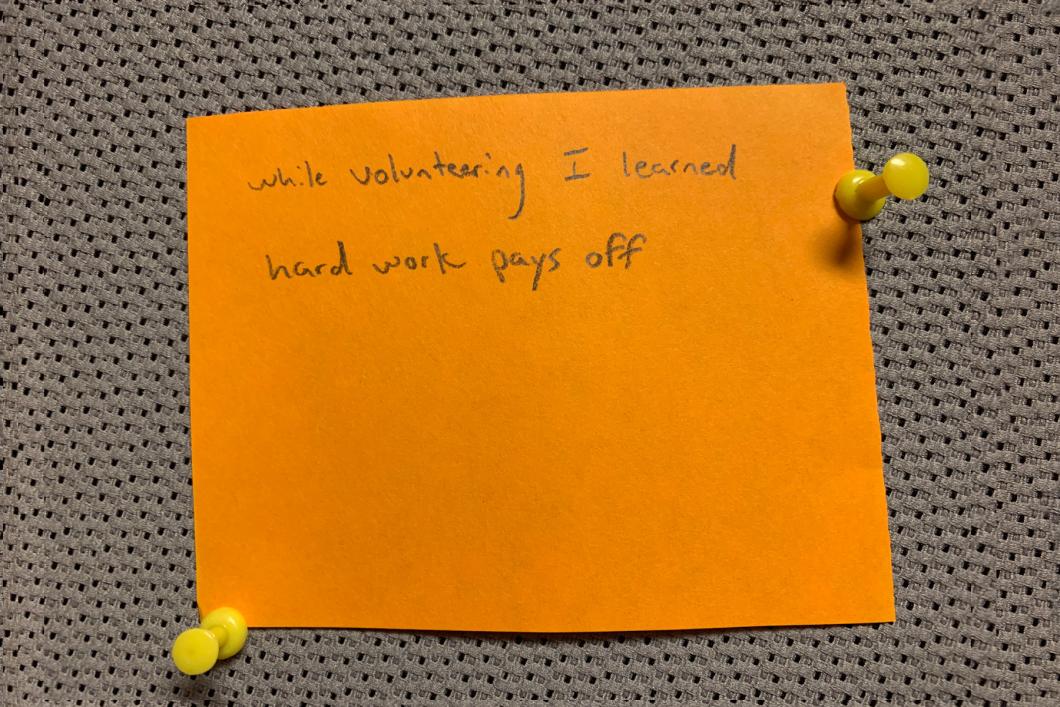 while volunteering I learned
hard work pays off